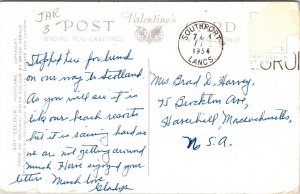 JAR
3
POST
Valentine's
SENDING YOU GREETINGS
SOUTHPORT
1954
LANCS.
Stopped here for lunch
on our way to Scotland.
As you will see it is
like our beach resorts
but it is raining hard so
we are not getting around
much. Have enjoyed your
letter. Much love
Gladys
Mrs Brad D. Harvey,
75 Brockton Ave,
Haverhill, Massachusetts,
U.S.A.